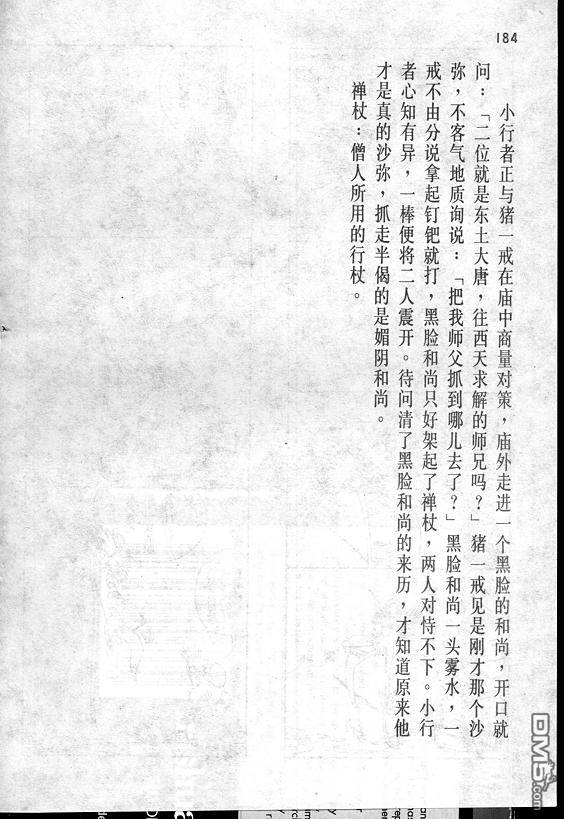 184
小行者正与猪一戒在庙中商量对策，庙外走进一个黑脸的和尚，开口就
问：「二位就是东土大唐，往西天求解的师兄吗？」猪一戒见是刚才那个沙
弥，不客气地质询说：「把我师父抓到哪儿去了？」黑脸和尚一头雾水，一
戒不由分说拿起钉钯就打，黑脸和尚只好架起了禅杖，两人对恃不下。小行
者心知有异，一棒便将二人震开。待问清了黑脸和尚的来历，才知道原来他
才是真的沙弥，抓走半偈的是媚阴和尚。
禅杖：僧人所用的行杖。
DM5.com